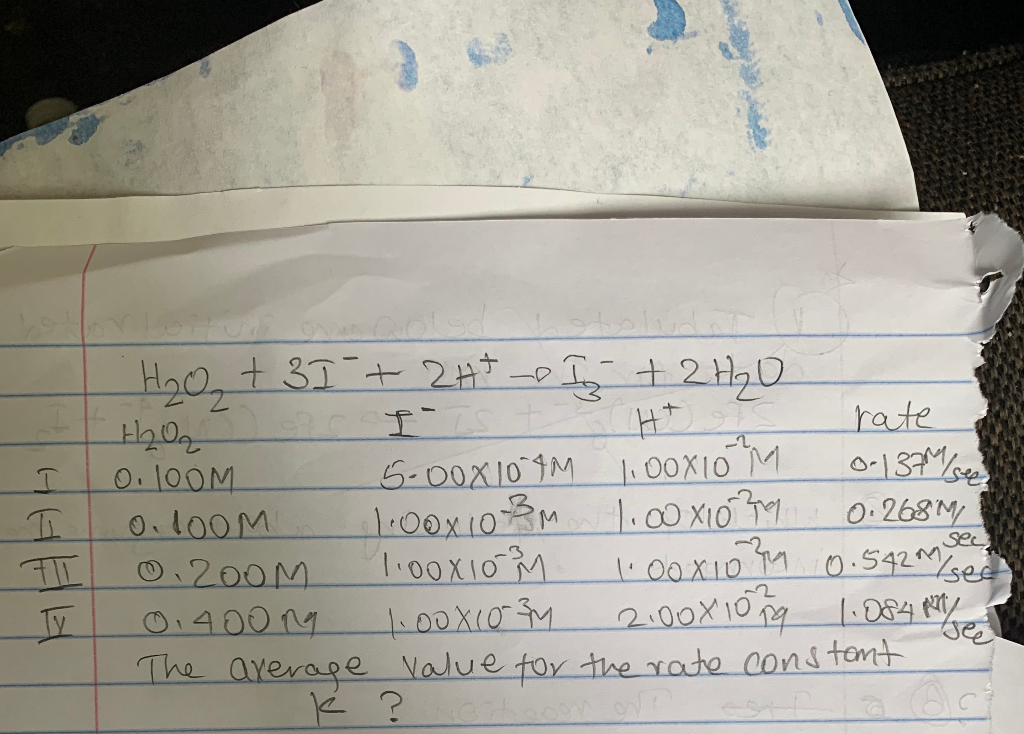 H₂O₂ + 3I⁻ + 2H⁺ → I₃⁻ + 2H₂O
H₂O₂ I⁻ H⁺ rate
I 0.100M 5.00X10⁻⁴M 1.00X10⁻²M 0.137M/sec
II 0.100M 1.00X10⁻³M 1.00X10⁻²M 0.268M/sec
III 0.200M 1.00X10⁻³M 1.00X10⁻²M 0.542M/sec
IV 0.400M 1.00X10⁻³M 2.00X10⁻²M 1.084M/sec
The average value for the rate constant
K ?